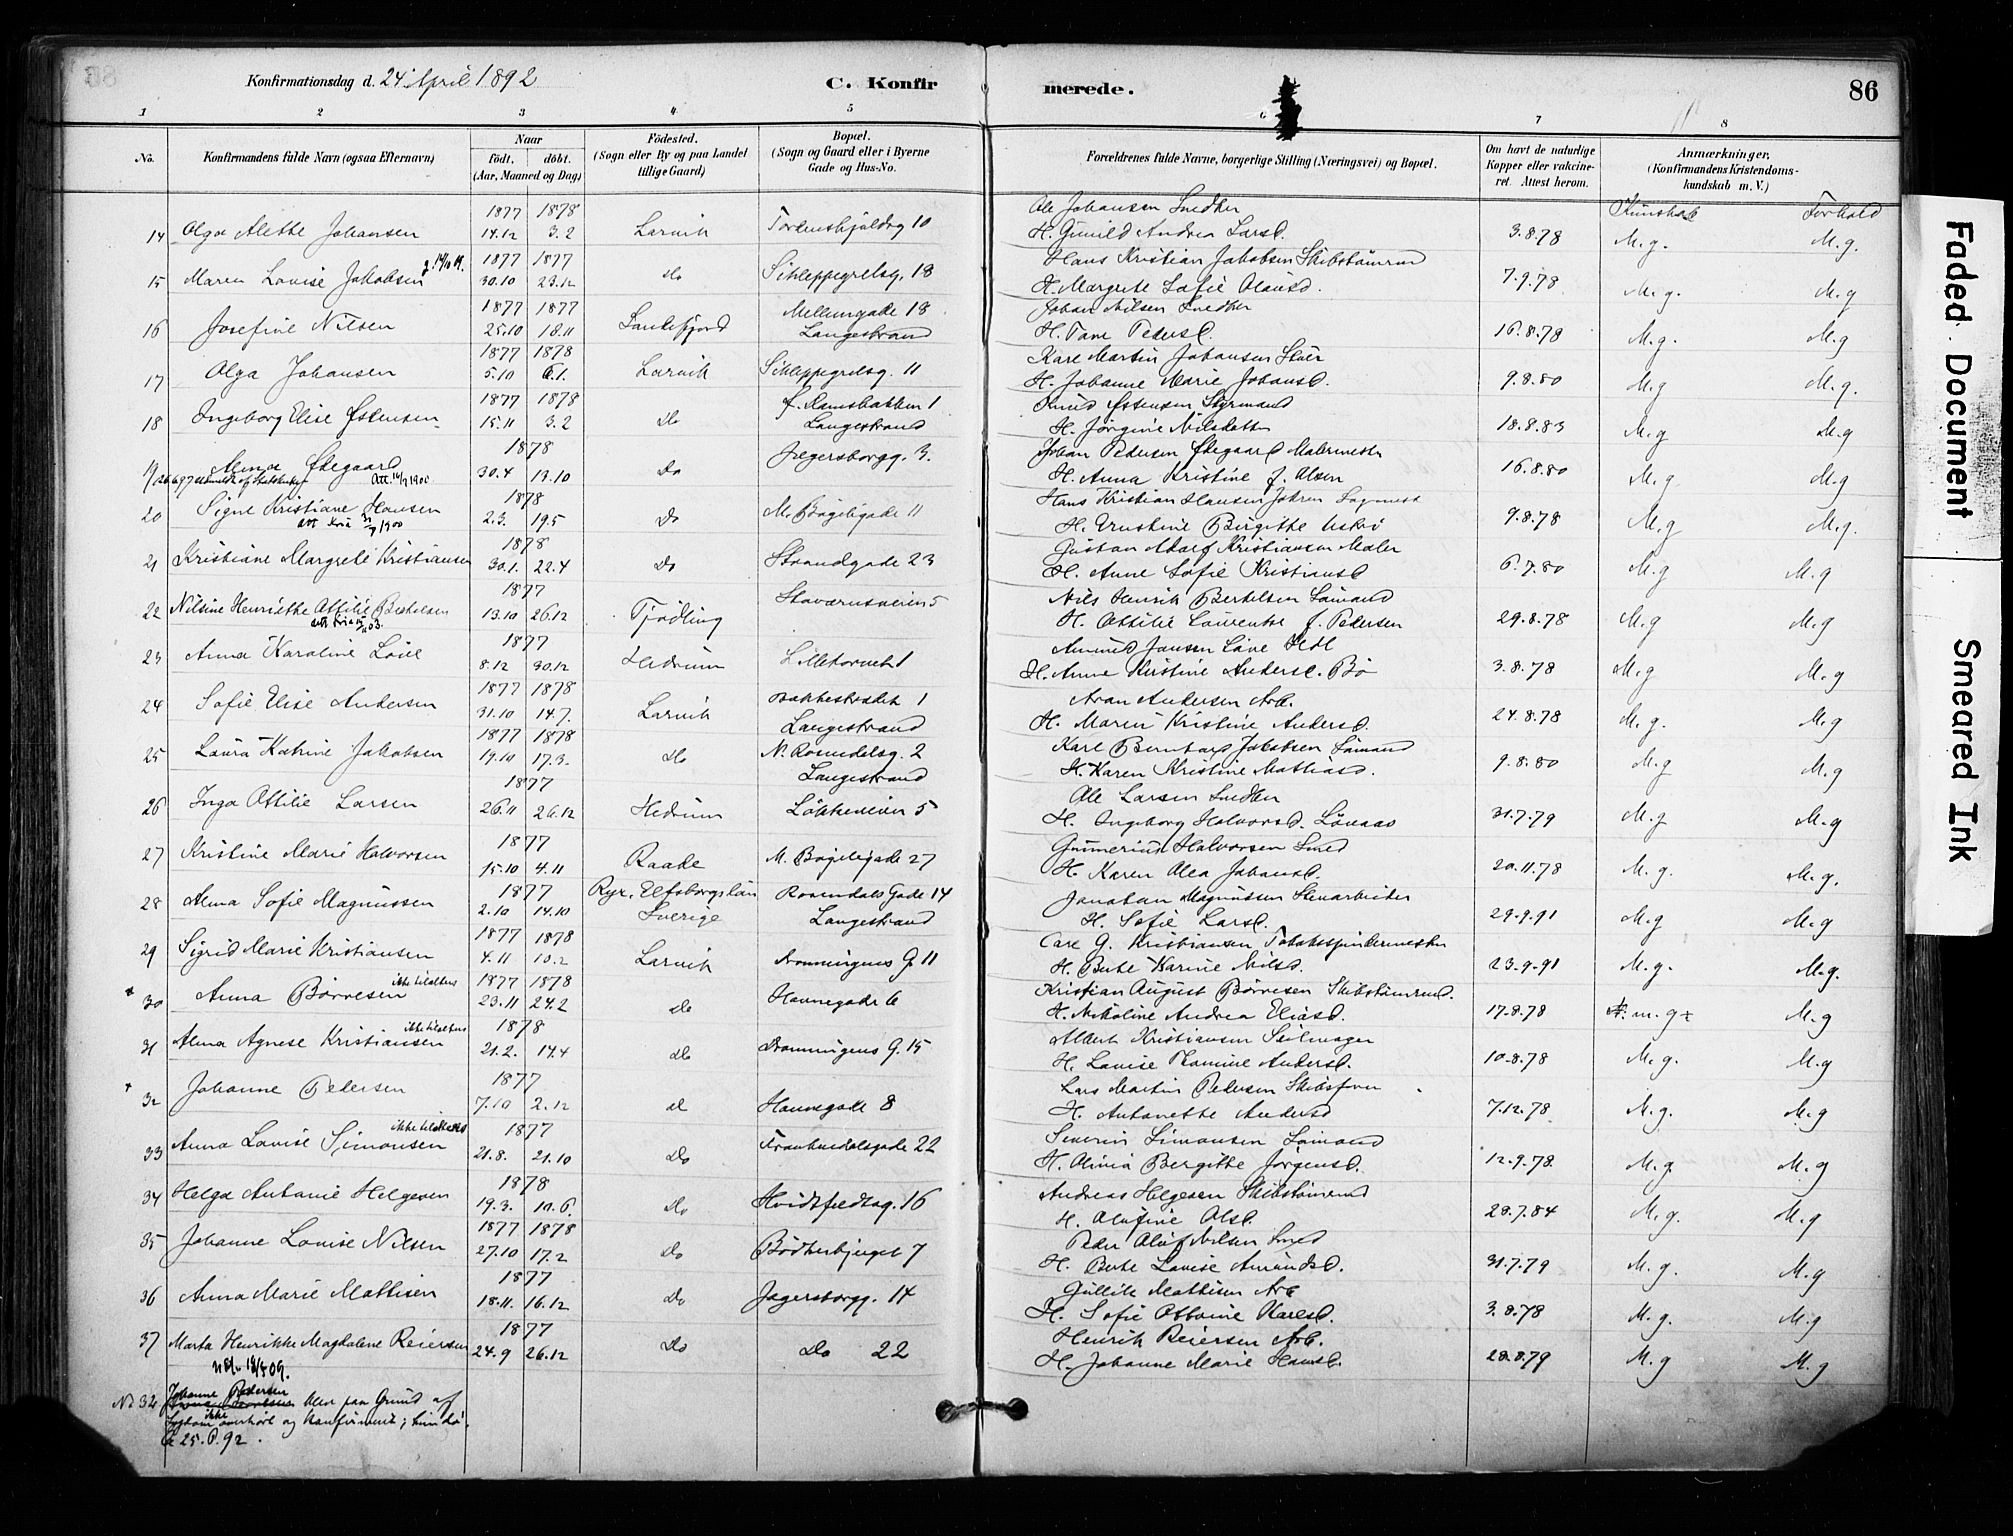 Konfirmationsdag d. 24 April 1892
C. Konfirmerede.
86
1 2 3 4 5 6 7 8
No.
Konfirmandens fulde Navn (ogsaa Efternavn)
Naar
födt. döbt.
(Aar, Maaned og Dag)
Födested.
(Sogn eller By og paa Landet
tillige Gaard)
Bopæl.
(Sogn og Gaard eller i Byerne
Gade og Hus-No.
Forældrenes fulde Navne, borgerlige Stilling (Næringsvei) og Bopæl.
Om havt de naturlige
Kopper eller vakcine-
ret. Attest herom.
Anmærkninger,
(Konfirmandens Kristendoms-
kundskab m. V.)
Kunskab Forhold
14 Olga Alette Johansen 1877 14.12 1878 3.2 Larvik Tordenskjoldsg 10 Ole Johansen Snedker
H. Gunild Andrea Larsd. 3.8.78 M.g. M.g.
15 Maren Lovise Jakobsen 1877 30.10 1877 23.12 do Sikleppegrelsg. 18 Hans Kristian Jakobsen Skibstömmd
H. Margrete Sofie Olausd. 7.9.78 M.g. M.g
16 Josefine Nilsen 1877 25.10 1877 18.11 Sandefjord Mellemgade 18
Langestrand Johan Nilsen Snedker
H. Tane Pedersd. 16.8.78 M.g. M.g
17 Olga Johansen 1877 5.10 1878 6.1. Larvik Sikleppegrelsg. 11 Karl Martin Johansen
H. Johanne Marie Johansd. 9.8.80 M.g M.g.
18 Ingeborg Elise Østensen 1877 15.11 1878 3.2 do Ramsbakken 1
Langestrand Knud Østensen Styrmand
H. Jörgine Nilsdatter 18.8.83 M.g M.g
19 Alma Ødegaard 1878 30.4 13.10 Do Jegersborgg. 3. Johan Pedersen Ødegaard Malermester
H. Anna Kristine f. Olsen 16.8.80 M.g M.g
20 Signe Kristiane Hansen 1878 2.3. 19.5 Do M. Bögeligade 11 Hans Kristian Hansen
H. Ernstine Birgitte 9.8.78 M.g M.g.
21 Kristiane Margrete Kristiansen 1878 30.1. 22.4 Do Strandgade 23 Gustav Adolf Kristiansen Maler
H. Anne Sofie Kristiansd 6.7.80 M.g M.g
22 Nilsine Henriette Ottilie Bertelsen 1877 13.10 26.12 Tjödling Stavernsveien 5 Nils Henrik Bertelsen Sömand
H. Ottilie Laurentse f. Pedersen 29.8.78 M.g M.g
23 Anna Karoline Löve 1877 8.12 30.12 Hedrum Lilletorvet 1 Amund Jansen Löve
H. Anne Kristine Andersd. Bö 3.8.78 M.g M.g
24 Sofie Elise Andersen 1877 31.10 1878 14.7. Larvik Bakkestrædet 1
Langestrand Aron Andersen Arb.
H. Maren Kristine Andersd. 24.8.78 M.g. M.g
25 Laura Katrine Jakobsen 1877 19.10 1878 17.3. do N. Rosendalsg. 2
Langestrand Karl Bernhard Jakobsen Sömand
H. Karen Kristine Mathiasd. 9.8.80 M.g M.g
26 Inga Ottilie Larsen 1877 26.11 26.12 Hedrum Lökkeveien 5 Ole Larsen Snedker
H. Ingeborg Halvorsd. Lönaas 31.7.79 M.g M.g
27 Kristine Marie Halvorsen 1877 15.10 4.11 Raade M. Bögeligade 27 Gunnerius Halvorsen Smed
H. Karen Olea Johansd. 20.11.78 M.g. M.g.
28 Alma Sofie Magnussen 1877 2.10 14.10 Ryr. Elfsborgslän
Sverige Rosendals Gade 14
Langestrand Jonatan Magnussen Stenarbeider
H. Sofie Larsd. 29.9.91 M.g M.g
29 Sigrid Marie Kristiansen 1877 4.11 1878 10.2 Larvik Dronningens G. 11 Carl G. Kristiansen Tobaksspindermester
H. Berte Karine Nilsd. 23.9.91 M.g. M.g.
30 Anna Börresen 1877 23.11 1878 24.2 do Havnegade 6 Kristian August Börresen Skibstömmd.
H. Nikoline Andrea Eliasd. 17.8.78 M.g
31 Alma Agnese Kristiansen 1878 21.2. 14.4 do Dronningens G. 15 Albert Kristiansen Seilmager
H. Lovise Tomine Andersd. 10.8.78 M.g. M.g
32 Johanne Pedersen 1877 7.10 2.12 do Havnegade 8 Lars Martin Pedersen Skibsförer
H. Antonette Andersd 7.12.78 M.g. M.g
33 Anna Lovise Simonsen 1877 21.8. 21.10 Do Frankendalsgade 22 Severin Simonsen Sömand
H. Olivia Bergitte Jörgensd. 12.9.78 M.g. M.g
34 Helga Antonie Helgesen 1878 19.3. 10.6. Do Hvidtfeldtsg. 16 Andreas Helgesen Skibstömmd
H. Olufine Olsd. 28.7.84 M.g. M.g
35 Johanne Lovise Nilsen 1877 27.10 1878 17.2 Do Bödkerbjerget 7 Peder Oluf Nilsen Smed
H. Berte Lovise Amundsd. 31.7.79 M.g. M.g
36 Anna Marie Mattisen 1877 18.11. 16.12 Do Jegersborgg. 14 Gullik Mattisen Arb
H. Sofie Ottomine Karlsd. 3.8.78 M.g. M.g
37 Marta Henrikke Magdalene Reiersen 1877 24.9 26.12 Do Do 22 Henrik Reiersen Arb.
H. Johanne Marie Hansd. 28.8.79 M.g M.g
No 32 Johanne Pedersen blev paa Grund af
Sygdom ikke overhört og konfirmeret;
25. 92.
Faded Document
Smeared Ink